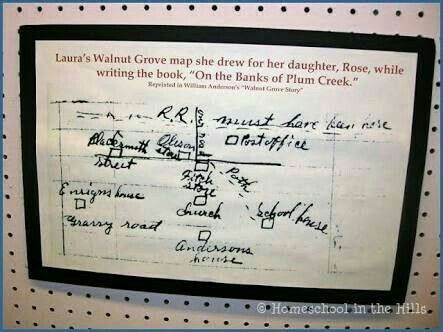 Laura's Walnut Grove map she drew for her daughter, Rose, while
writing the book, "On the Banks of Plum Creek."
Reprinted in William Anderson's "Walnut Grove Story"
R.R. must have been here
Blacksmith
Oleson
store
Post office
Street
Fitch
store
Path
Ensigns house
Church
School house
Grassy road
Andersons
house
© Homeschool in the Hills